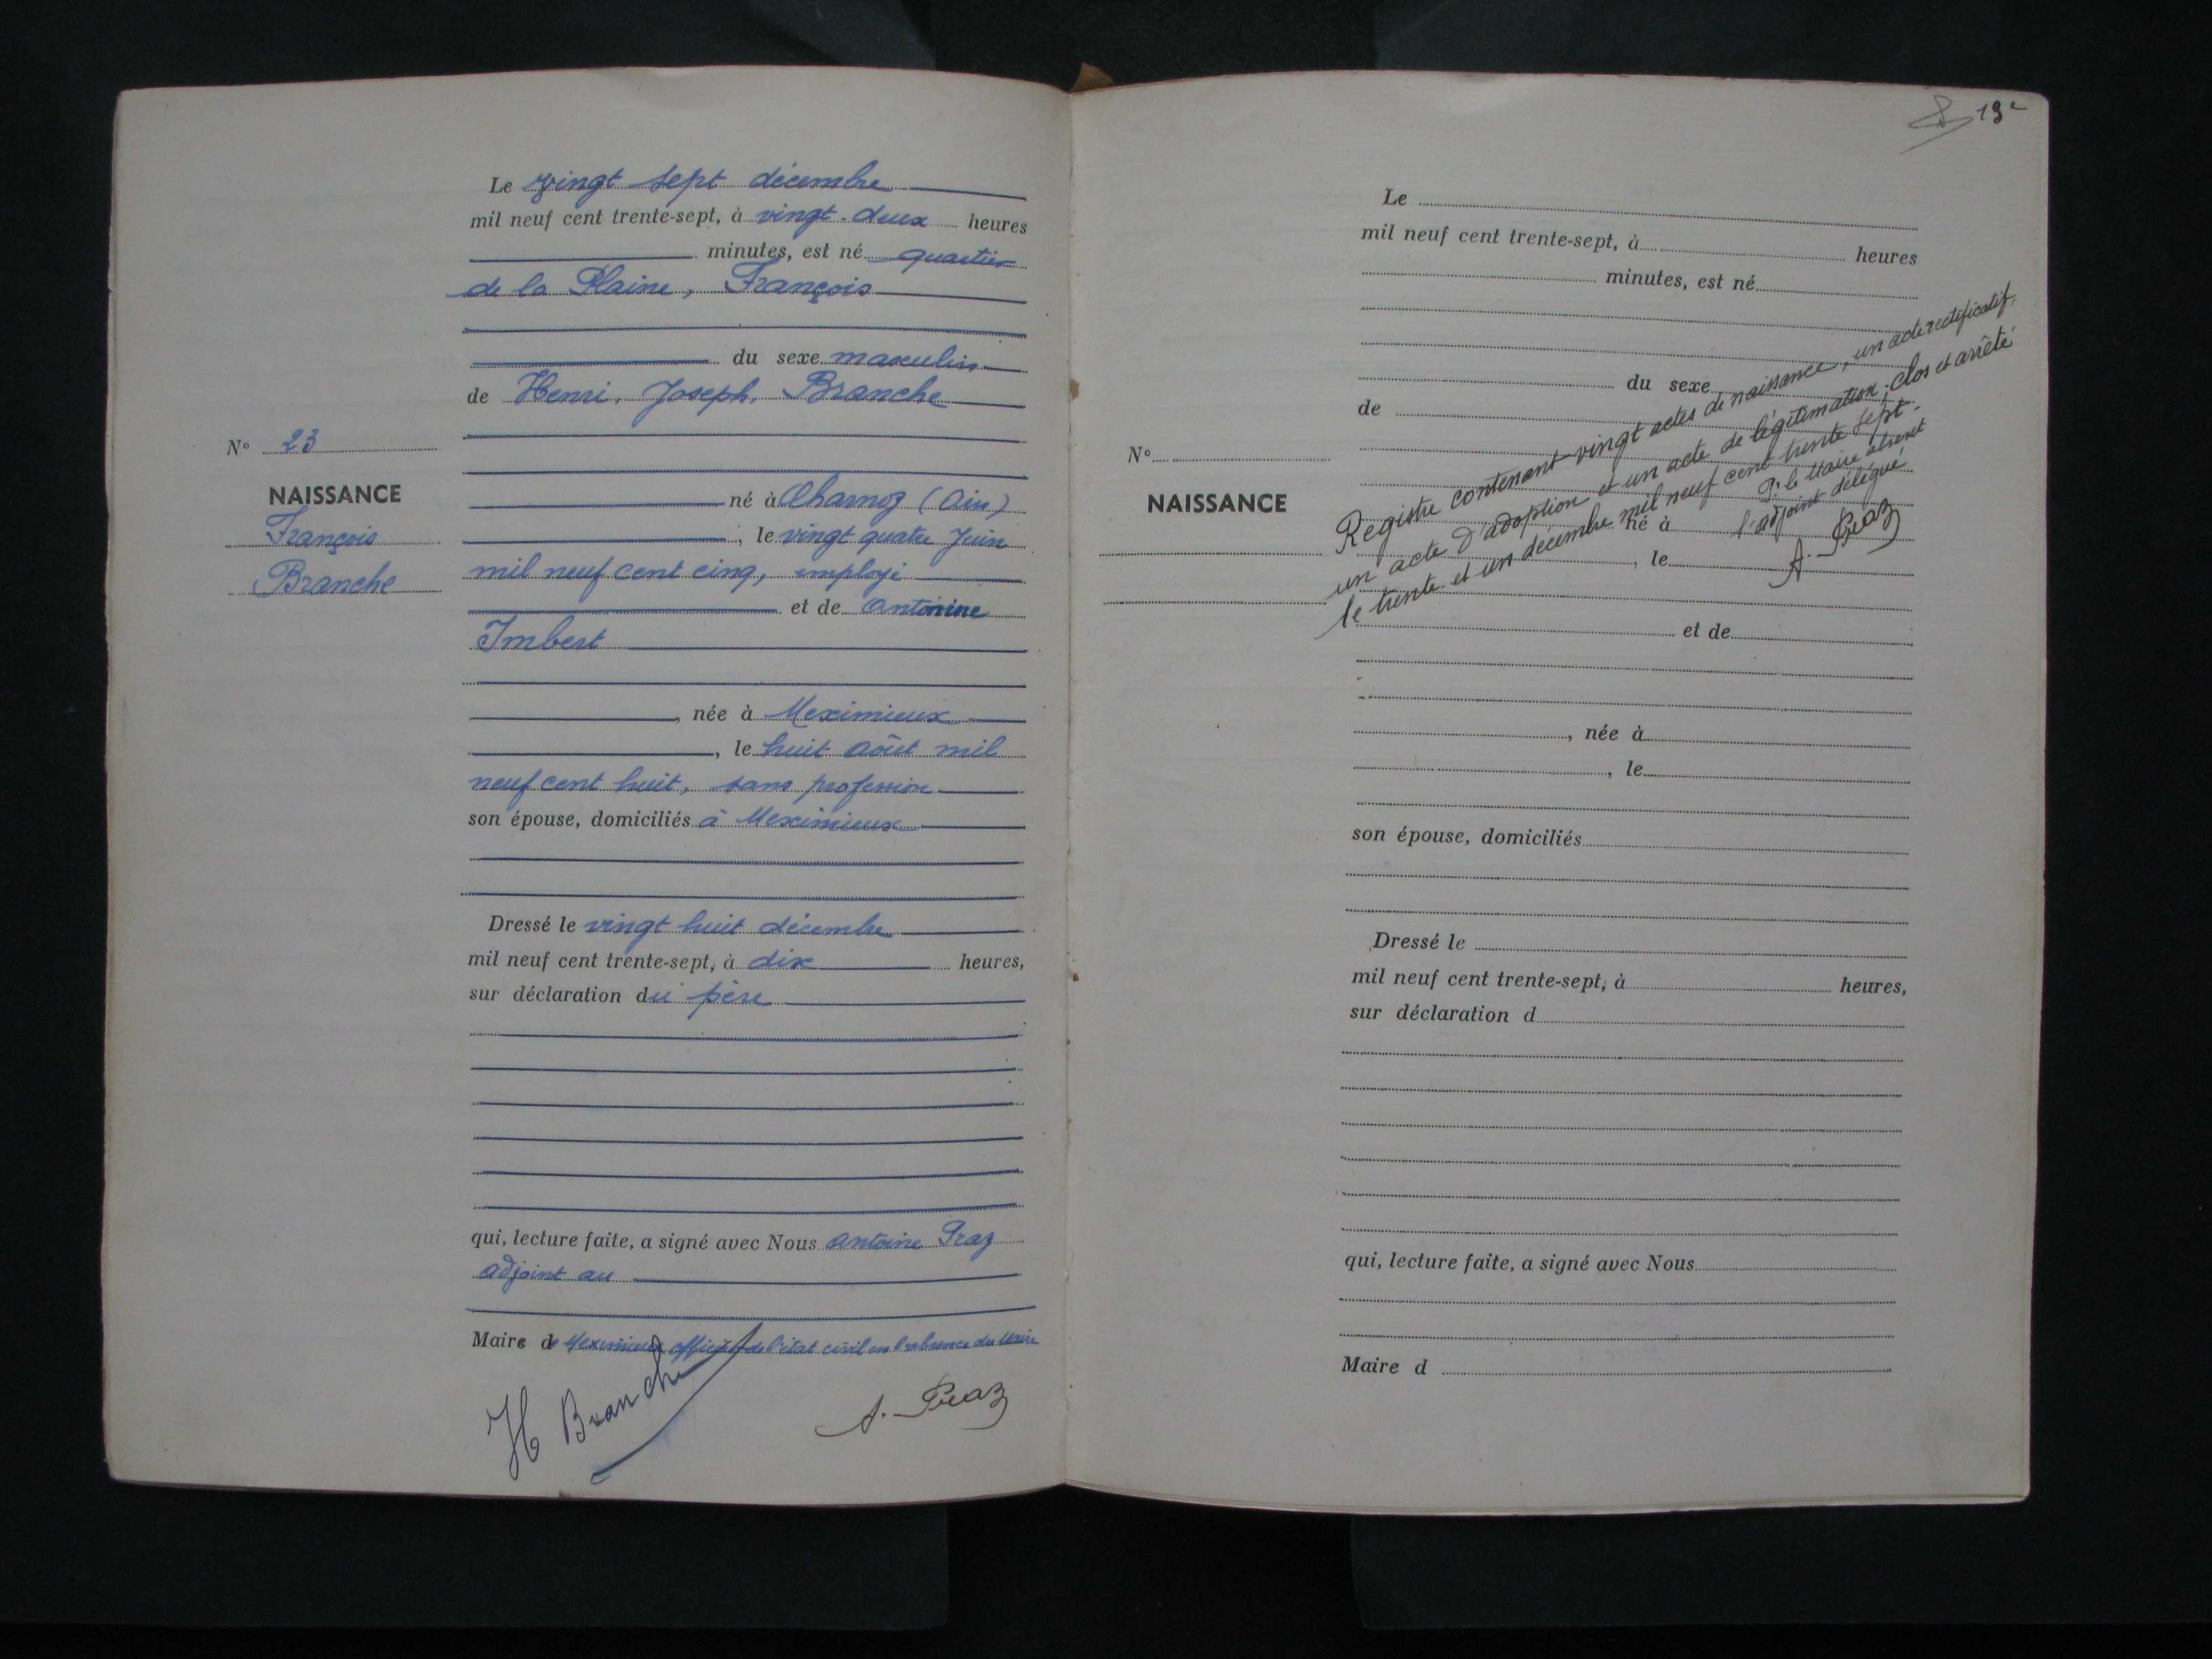 Le vingt sept décembre
mil neuf cent trente-sept, à vingt-deux heures
minutes, est né quartier
de la Plaine, François
du sexe masculin
de Henri, Joseph, Branche
N° 23
NAISSANCE
François
Branche
né à Charnoz (Ain)
, le vingt quatre Juin
mil neuf cent cinq, employé
et de Antonine
Imbert
, née à Meximieux
, le huit août mil
neuf cent huit, sans profession
son épouse, domiciliés à Meximieux
Dressé le vingt huit décembre
mil neuf cent trente-sept, à dix heures,
sur déclaration du père
qui, lecture faite, a signé avec Nous Antoine Praz
adjoint au
Maire de Meximieux officier de l'état civil en l'absence du Maire
H Branche
A. Praz
19
Le
mil neuf cent trente-sept, à heures
minutes, est né
du sexe
de
N°
NAISSANCE
né à
, le
et de
, née à
, le
son épouse, domiciliés
Dressé le
mil neuf cent trente-sept, à heures,
sur déclaration d
qui, lecture faite, a signé avec Nous
Maire d
Registre contenant vingt actes de naissance, un acte rectificatif,
un acte d'adoption et un acte de légitimation; clos et arrêté
le trente et un décembre mil neuf cent trente sept.
P. le Maire absent
l'adjoint délégué
A. Praz